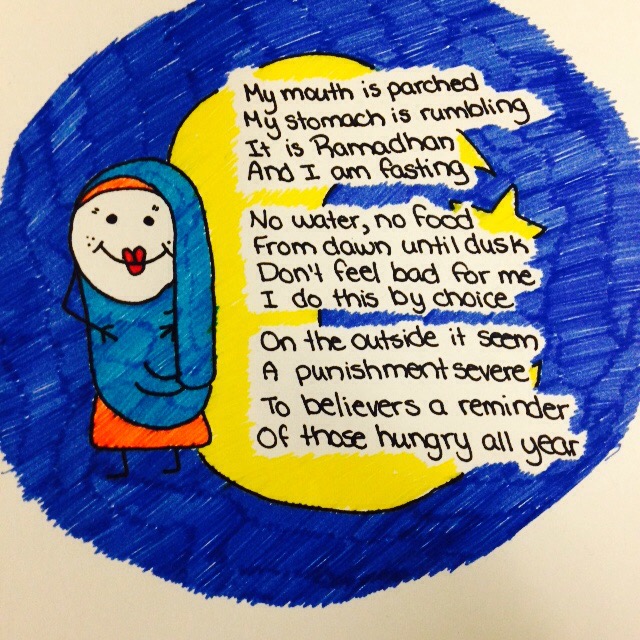 My mouth is parched
My stomach is rumbling
It is Ramadhan
And I am fasting
No water, no food
From dawn until dusk
Don't feel bad for me
I do this by choice
On the outside it seem
A punishment severe
To believers a reminder
Of those hungry all year